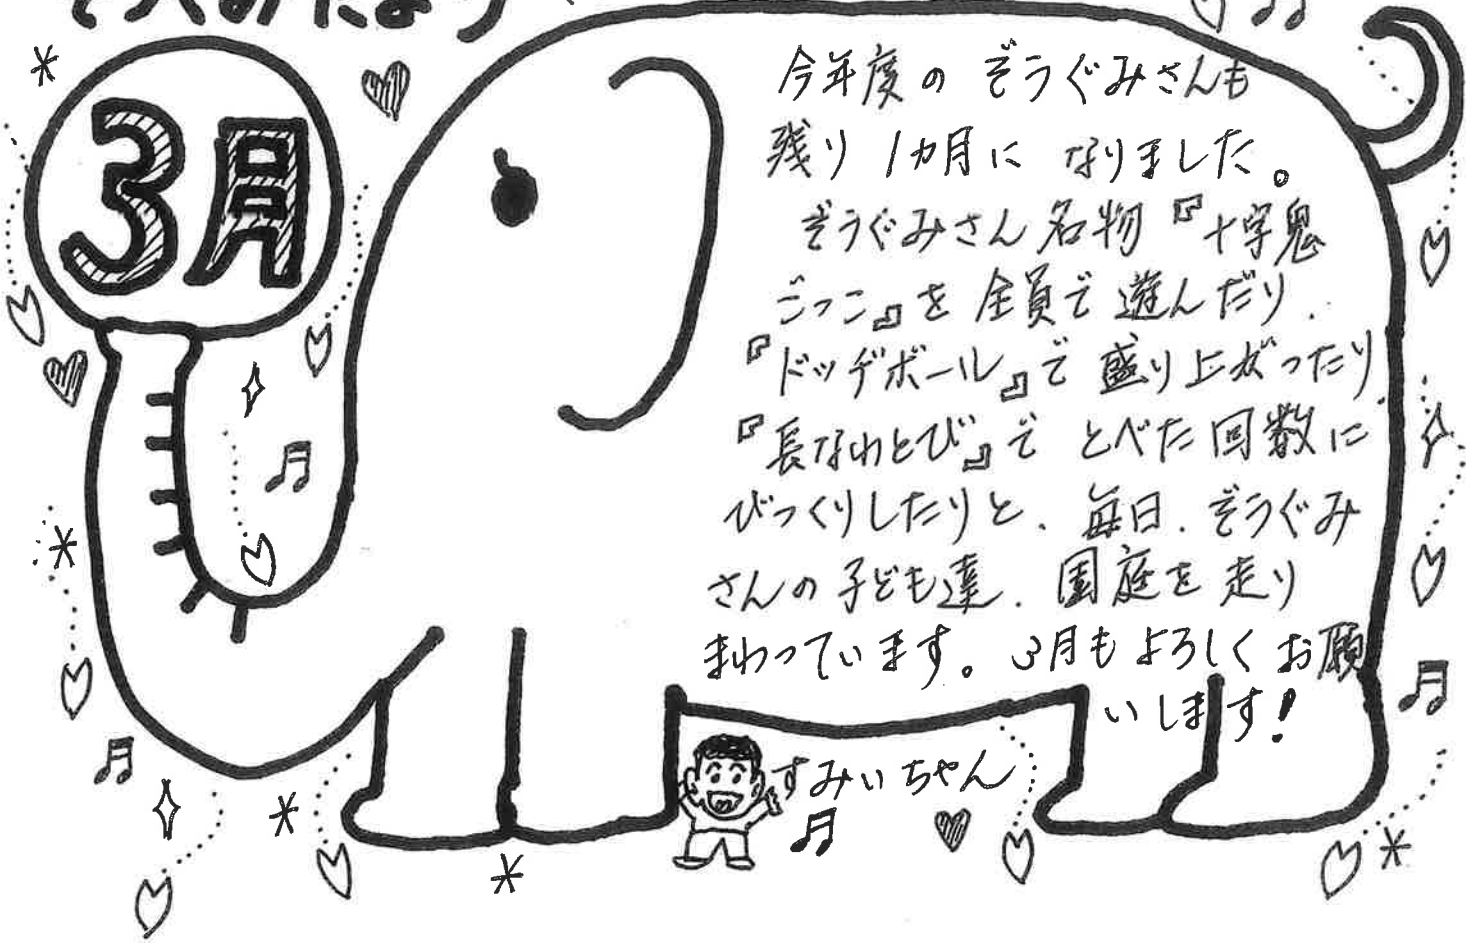 ぞうぐみだより
3月
今年度の ぞうぐみさんも
残り 1ヵ月に なりました。
ぞうぐみさん名物『十字鬼
ごっこ』を 全員で遊んだり、
『ドッヂボール』で 盛り上がったり
『長なわとび』で とべた回数に
びっくりしたりと、毎日、ぞうぐみ
さんの子ども達、園庭を走り
まわっています。3月もよろしくお願
いします!
すみぃちゃん